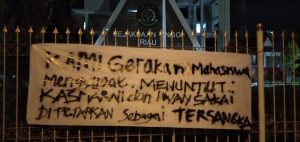 KEJAKSAAN TINGGI
RIAU
KAMI Gerakan Mahasiswa
Menggugat, MENUNTUT:
KASMARNI dan
DITETAPKAN sebagai TERSANGKA